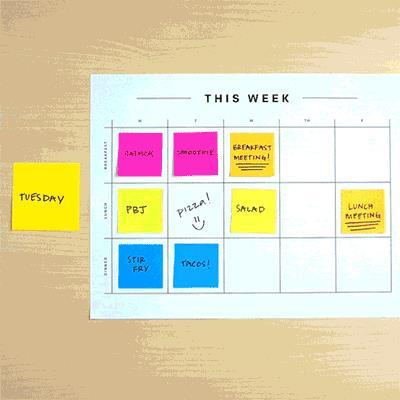 THIS WEEK
M T W TH F
BREAKFAST
SMOOTHIE
BREAKFAST
MEETING!
TUESDAY
LUNCH
PBJ
pizza!
SALAD
LUNCH
MEETING
DINNER
STIR
FRY
TACOS!